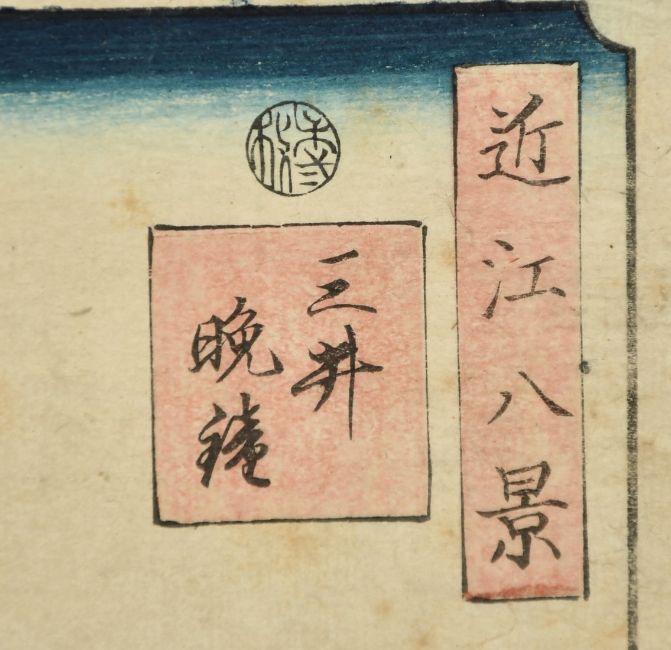 近江八景
三井
晩鐘